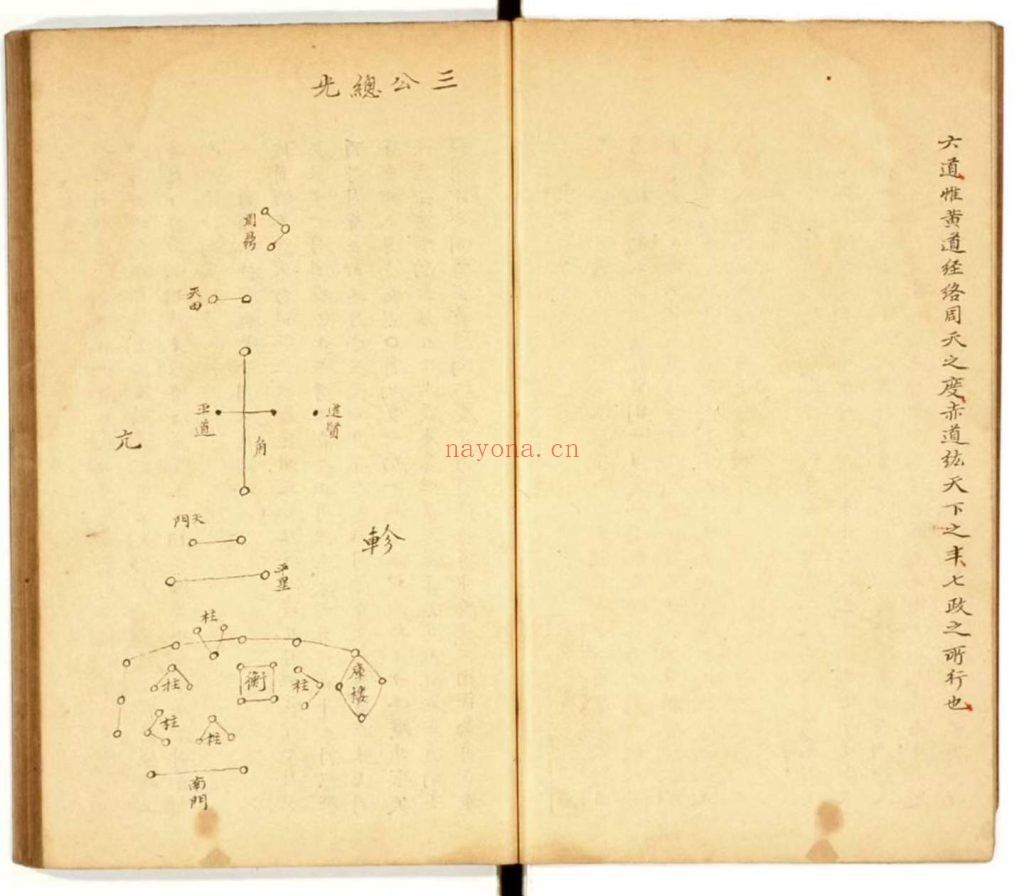 六道惟黄道经络周天之度赤道紘天下之七政之所行也
三公總光
周鼎
天田
進賢
平道
角
亢
天門
軫
平星
柱
庫樓
衡
柱
柱
柱
柱
南門
nayona.cn